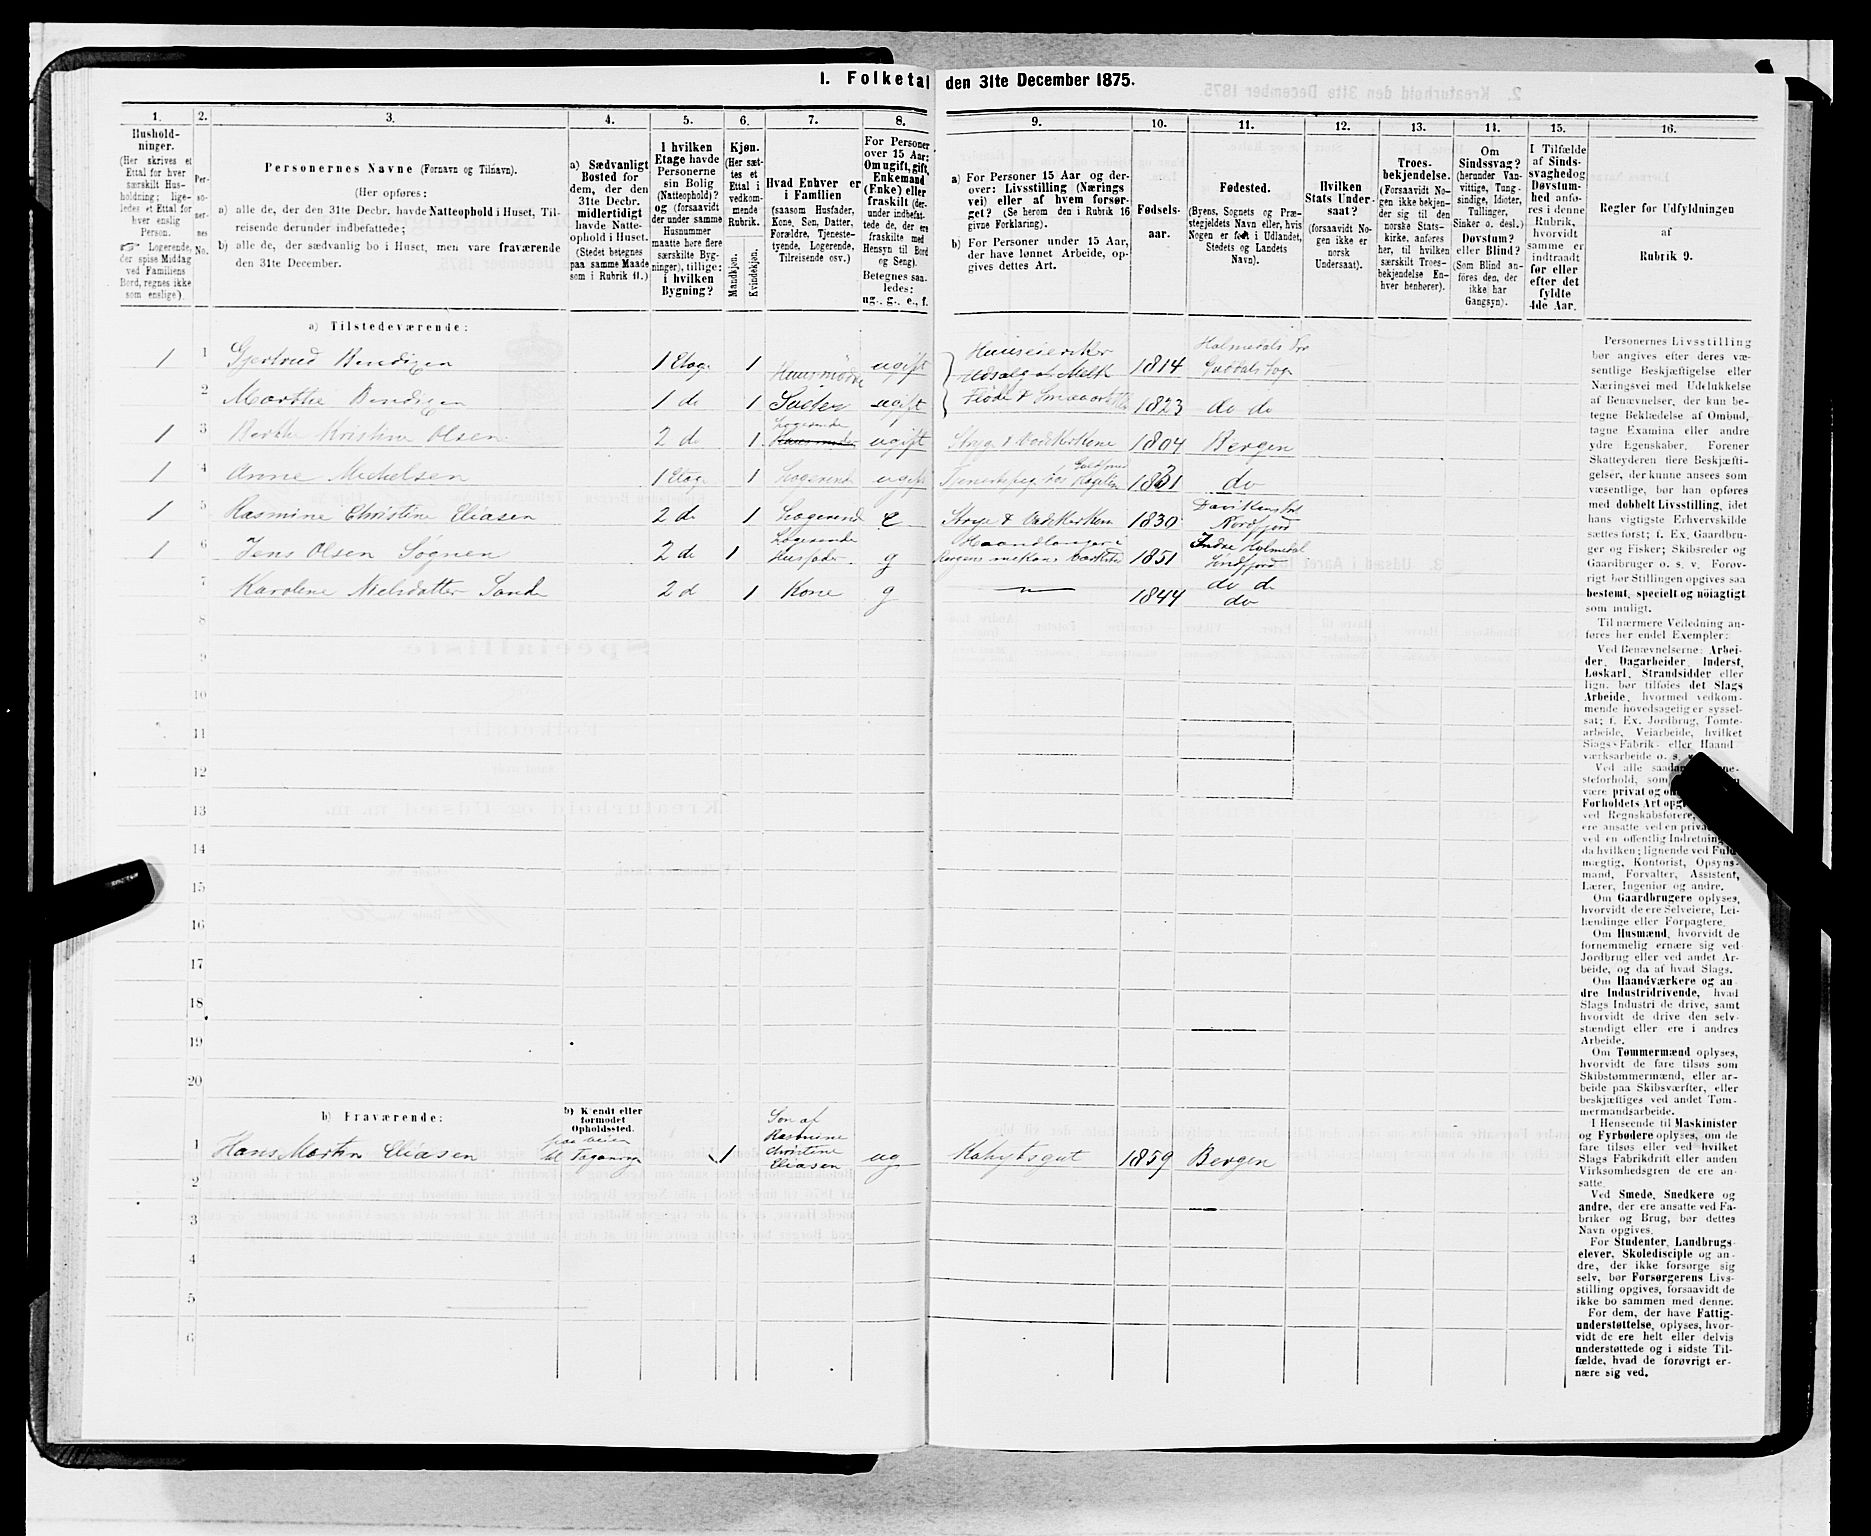 1. Folketal den 31te December 1875.
1.
Hushold-
ninger.
(Her skrives et
Ettal for hver
særskilt Hus-
holdning; lige-
ledes et Ettal for
hver enslig
Person.
☞ Logerende,
der spise Middag
ved Familiens
Bord, regnes ikke
som enslige).
2.
Per-
so-
ner-
nes
No.
3.
Personernes Navne (Fornavn og Tilnavn).
(Her opføres:
a) alle de, der den 31te Decbr. havde Natteophold i Huset, Til-
reisende derunder indbefattede;
b) alle de, der sædvanlig bo i Huset, men vare fraværende
den 31te December.
4.
a) Sædvanligt
Bosted for
dem, der den
31te Decbr.
midlertidigt
havde Natte-
ophold i Huset.
(Stedet betegnes
paa samme Maade
som i Rubrik 11.)
5.
I hvilken
Etage havde
Personerne
sin Bolig
(Natteophold)?
og (forsaavidt
der under samme
Husnummer
maatte høre flere
særskilte Byg-
ninger), tillige:
i hvilken
Bygning?
6.
Kjøn.
(Her sæt-
tes et
Ettal i
vedkom-
mende
Rubrik.
Mandkjøn.
Kvindekjøn.
7.
Hvad Enhver er
i Familien
(saasom Husfader,
Kone, Søn, Datter,
Forældre, Tjeneste-
tyende, Logerende,
Tilreisende osv.)
8.
For Personer
over 15 Aar:
Om ugift, gift,
Enkemand
(Enke) eller
fraskilt (der-
under indbefat-
tede de, der ere
fraskilte med
Hensyn til Bord
og Seng).
Betegnes saa-
ledes:
ug., g., e., f.
9.
a) For Personer 15 Aar og der-
over: Livsstilling (Nærings
vei) eller af hvem forsør-
get? (Se herom den i Rubrik 16
givne Forklaring).
b) For Personer under 15 Aar,
der have lønnet Arbeide, op-
gives dettes Art.
10.
Fødsels-
aar.
11.
Fødested.
(Byens, Sognets og Præ-
stegjeldets Navn eller, hvis
Nogen er født i Udlandet,
Stedets og Landets
Navn).
12.
Hvilken
Stats Under-
saat?
(forsaavidt No-
gen ikke er
norsk
Undersaat).
13.
Troes-
bekjendelse.
(Forsaavidt No-
gen ikke bekjen-
der sig til den
norske Stats-
kirke, anføres
her, til hvilken
særskilt Troes-
bekjendelse En-
hver henhører).
14.
Om
Sindssvag?
(herunder Van-
vittige, Tung-
sindige, Idioter,
Tullinger,
Sinker o. desl.)
Døvstum?
eller Blind?
(Som Blind an-
føres den, der
ikke har
Gangsyn).
15.
I Tilfælde
af Sinds-
svaghed og
Døvstum-
hed anfø-
res i denne
Rubrik,
hvorvidt
samme er
indtraadt
før eller
efter det
fyldte
4de Aar.
16.
Regler for Udfyldningen
af
Rubrik 9.
a) Tilstedeværende:
1 1 Gjertrud Bendixen 1 Etage 1 Huusmoder ugift Huuseierske Udsalg af Melk 1814 Holmedals Gulddals Sogn
2 Marthe Bendixen 1 do 1 Søster ugift Fløde & 1823 do do
1 3 Berthe Kristine Olsen 2 do 1 Logerende ugift Stryge & Vadskerkone 1804 Bergen
1 4 Anne Michelsen 1 Etage 1 Logerende ugift 1831 do
1 5 Rasmine Christine Eliasen 2 do 1 Logerende e Stryge & Vadskerkone 1830 Daviken Nordfjord
1 6 Jens Olsen Søgnen 2 do 1 Logerende Husfader g Haandlanger Bergens mekan. Værksted 1851 Indre Holmedal Søndfjord
7 Karoline Nielsdatter Sande 2 d 1 Kone g — 1844 do do do
8
9
10
11
12
13
14
15
16
17
18
19
20
b) Fraværende:
b) Kjendt eller
formodet
Opholdssted.
1 Hans Martin Eliasen paa veien til Taganrog 1 Søn af Rasmine Christine Eliasen ug Kahytsgut 1859 Bergen
2
3
4
5
6
Personernes Livsstilling
bør angives efter deres væ-
sentlige Beskjæftigelse eller
Næringsvei med Udelukkelse
af Benævnelser, der kun be-
tegne Beklædelse af Ombud,
tagne Examina eller andre
ydre Egenskaber. Forener
Skatteyderen flere Beskjæfti-
gelser, der kunne ansees som
væsentlige, bør han opføres
med dobbelt Livsstilling, idet
hans vigtigste Erhvervskilde
sættes først; f. Ex. Gaardbru-
ger og Fisker; Skibsreder og
Gaardbruger o. s. v. Forøv-
rigt bør Stillingen opgives saa
bestemt, specielt og nøiagtigt
som muligt.
Til nærmere Veiledning an-
føres her endel Exempler:
Ved Benævnelserne: Arbei-
der, Dagarbeider, Inderst,
Løskarl, Strandsidder eller
lign. bør tilføies det Slags
Arbeide, hvormed vedkom-
mende hovedsagelig er syssel-
sat; f. Ex. Jordbrug, Tomte-
arbeide, Veiarbeide, hvilket
Slags Fabrik- eller Haand
værksarbeide o. s.
Ved alle
steforhold, som
være privat og
Forholdets Art
ved Regnskabsførere,
ere ansatte ved en
ved en offentlig Indretning
da hvilken; lignende ved Fuld-
mægtig, Kontorist, Opsyns-
mand, Forvalter, Assistent,
Lærer, Ingeniør og andre.
Om Gaardbrugere oplyses,
hvorvidt de ere Selveiere, Lei-
lændinge eller Forpagtere.
Om Husmænd, hvorvidt de
fornemmelig ernære sig ved
Jordbrug eller ved andet Ar-
beide, og da af hvad Slags.
Om Haandværkere og an
dre Industridrivende, hvad
Slags Industri de drive, samt
hvorvidt de drive den selv-
stændigt eller ere i andres
Arbeide.
Om Tømmermænd oplyses,
hvorvidt de fare tilsøs som
Skibstømmermænd, eller ar-
beide paa Skibsværfter, eller
beskjæftiges ved andet Tøm-
mermandsarbeide.
I Henseende til Maskinister
og Fyrbødere oplyses, om de
fare tilsøs eller ved hvilket
Slags Fabrikdrift eller anden
Virksomhedsgren de ere an-
satte.
Ved Smede, Snedkere og
andre, der ere ansatte ved Fa-
briker og Brug, bør dettes
Navn opgives.
For Studenter, Landbrugs-
elever, Skoledisciple og an-
dre, der ikke forsørge sig
selv, bør Forsørgerens Livs-
stilling opgives, forsaavidt de
ikke bo sammen med denne.
For dem, der have Fattig-
understøttelse, oplyses, hvor-
vidt de ere helt eller delvis
understøttede og i sidste Til-
fælde, hvad de forøvrigt er-
nære sig ved.